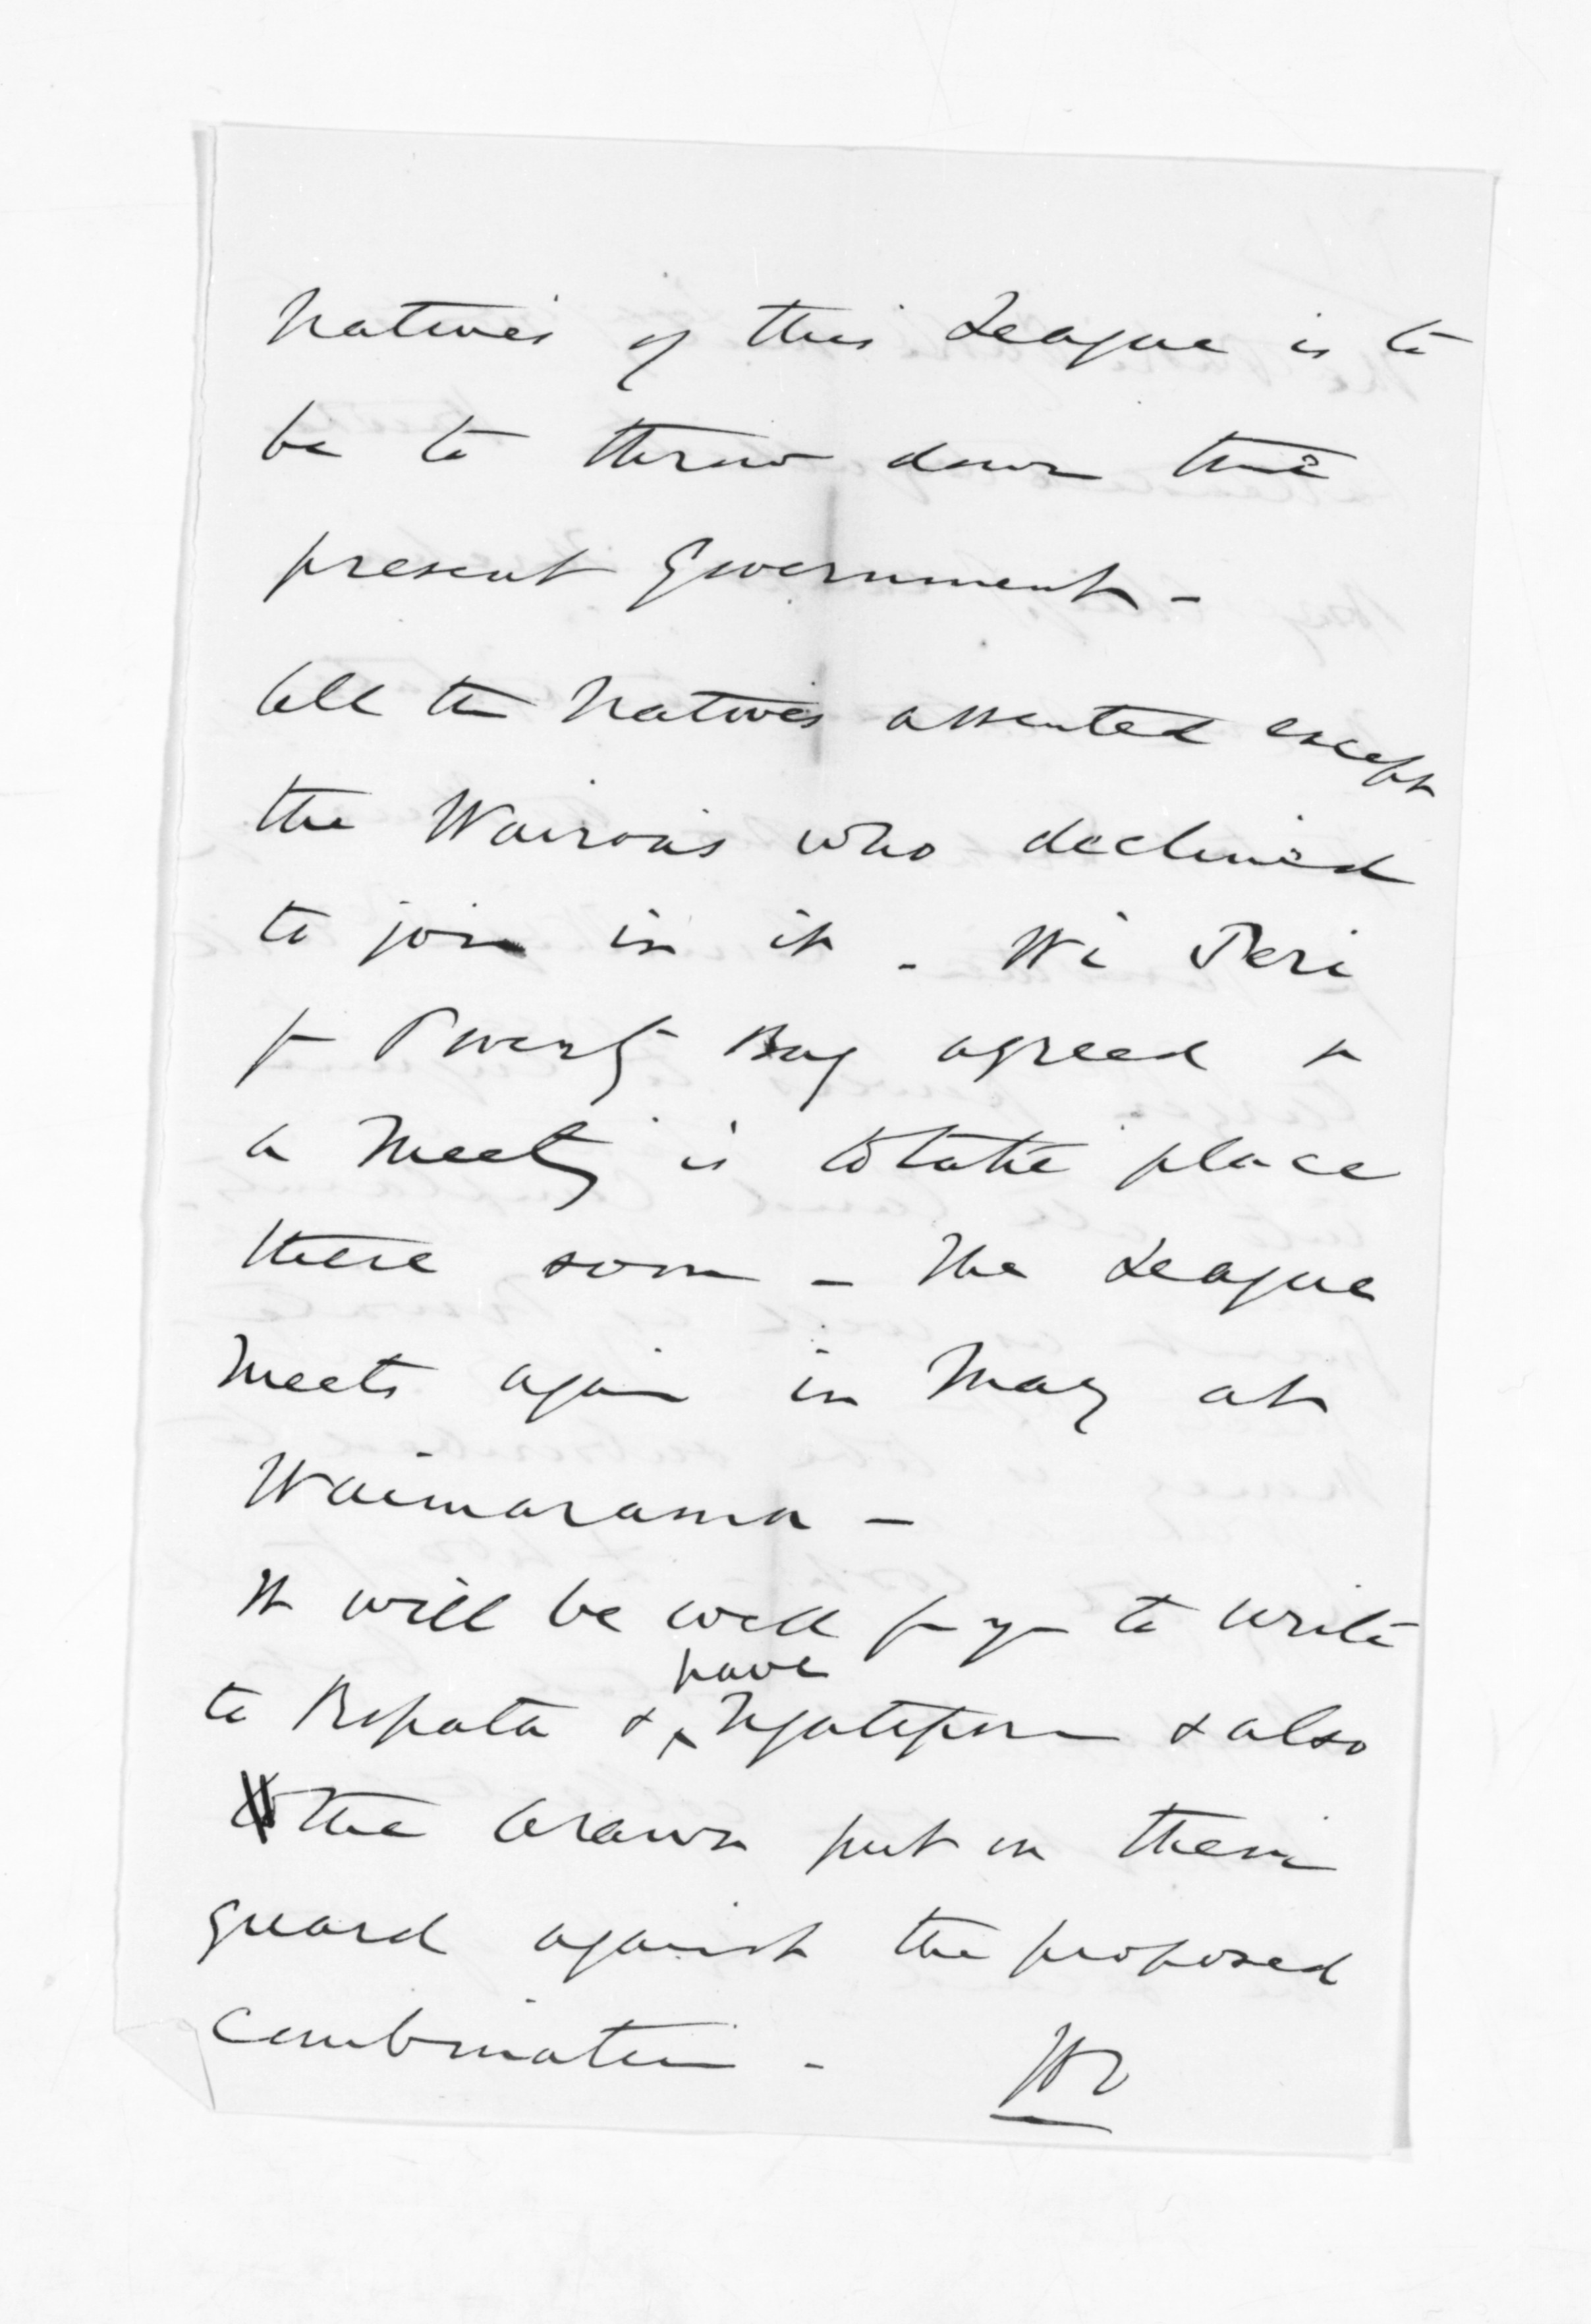 Natives of this League is to
be to throw down the
present Government -
All the Natives assented except
the Wairoas who declined
to join in it - Wi Pere
for Poverty Bay agreed &
a Meeting is to take place
there soon - The League
Meets again in May at
Waimarama -
It will be well for you to write
to Ropata & have Ngatiporou & also
the Arawa put on their
guard against the proposed
combination -